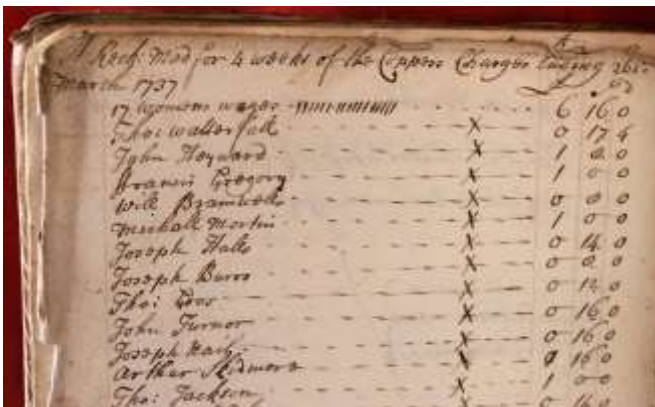 A Reck: Mad for 4 weeks of the Coppers Charges Ending 26th
March 1737
17 womens wages 6 16 0
Tho: Walterfall X 0 17 4
John Heyward X 1 0 0
Francis Gregory X 1 0 0
Will Bramwell X 0 0 0
Michall Martin X 1 0 0
Joseph Halle X 0 14 0
Joseph Burro X 0 0 0
Tho: X 0 12 0
John Turnor X 0 16 0
Joseph X 0 16 0
Arthur Skidmore X 0 16 0
Tho: Jackson X 1 0 0
0 16 0